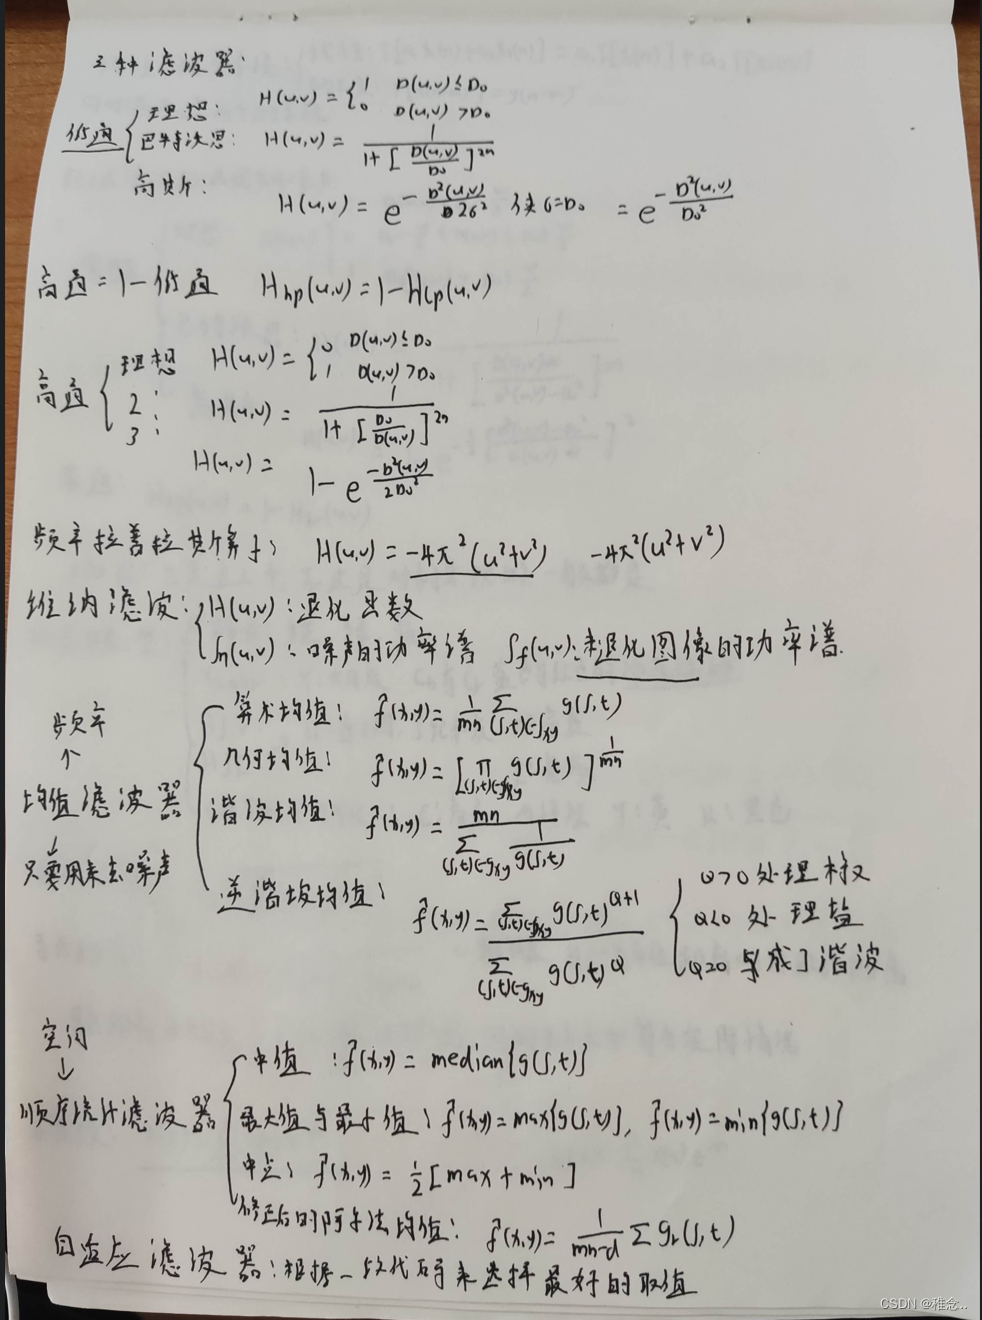 三种滤波器:
低通 { 理想: H(u,v) = { 1 D(u,v) ≤ D₀
0 D(u,v) > D₀
巴特沃思: H(u,v) = 1 / (1 + [D(u,v)/D₀]^2n)
高斯: H(u,v) = e^(-D²(u,v)/2σ²) 使σ=D₀ = e^(-D²(u,v)/D₀²)
高通 = 1 - 低通 H_hp(u,v) = 1 - H_lp(u,v)
高通 { 理想 H(u,v) = { 0 D(u,v) ≤ D₀
1 D(u,v) > D₀
2: H(u,v) = 1 / (1 + [D₀/D(u,v)]^2n)
3: H(u,v) = 1 - e^(-D²(u,v)/2D₀²)
频率拉普拉斯算子: H(u,v) = -4π²(u²+v²) -4π²(u²+v²)
维纳滤波: { H(u,v): 退化函数
Sn(u,v): 噪声的功率谱 Sf(u,v): 未退化图像的功率谱.
频率
↑
均值滤波器
↓
只要用来去噪声
算术均值: f̂(x,y) = 1/mn ∑_(s,t)∈Sxy g(s,t)
几何均值: f̂(x,y) = [∏_(s,t)∈Sxy g(s,t)]^(1/mn)
谐波均值: f̂(x,y) = mn / ∑_(s,t)∈Sxy 1/g(s,t)
逆谐波均值: f̂(x,y) = ∑_(s,t)∈Sxy g(s,t)^(Q+1) / ∑_(s,t)∈Sxy g(s,t)^Q
{ Q>0 处理椒
Q<0 处理盐
Q=0 成了谐波
空间
↓
顺序统计滤波器
中值: f̂(x,y) = median{g(s,t)}
最大值与最小值: f̂(x,y) = max{g(s,t)}, f̂(x,y) = min{g(s,t)}
中点: f̂(x,y) = 1/2 [max + min]
修正后的阿尔法均值: f̂(x,y) = 1/(mn-d) ∑ gr(s,t)
自适应滤波器: 根据一致代码来选择最好的取值
CSDN @稚念..